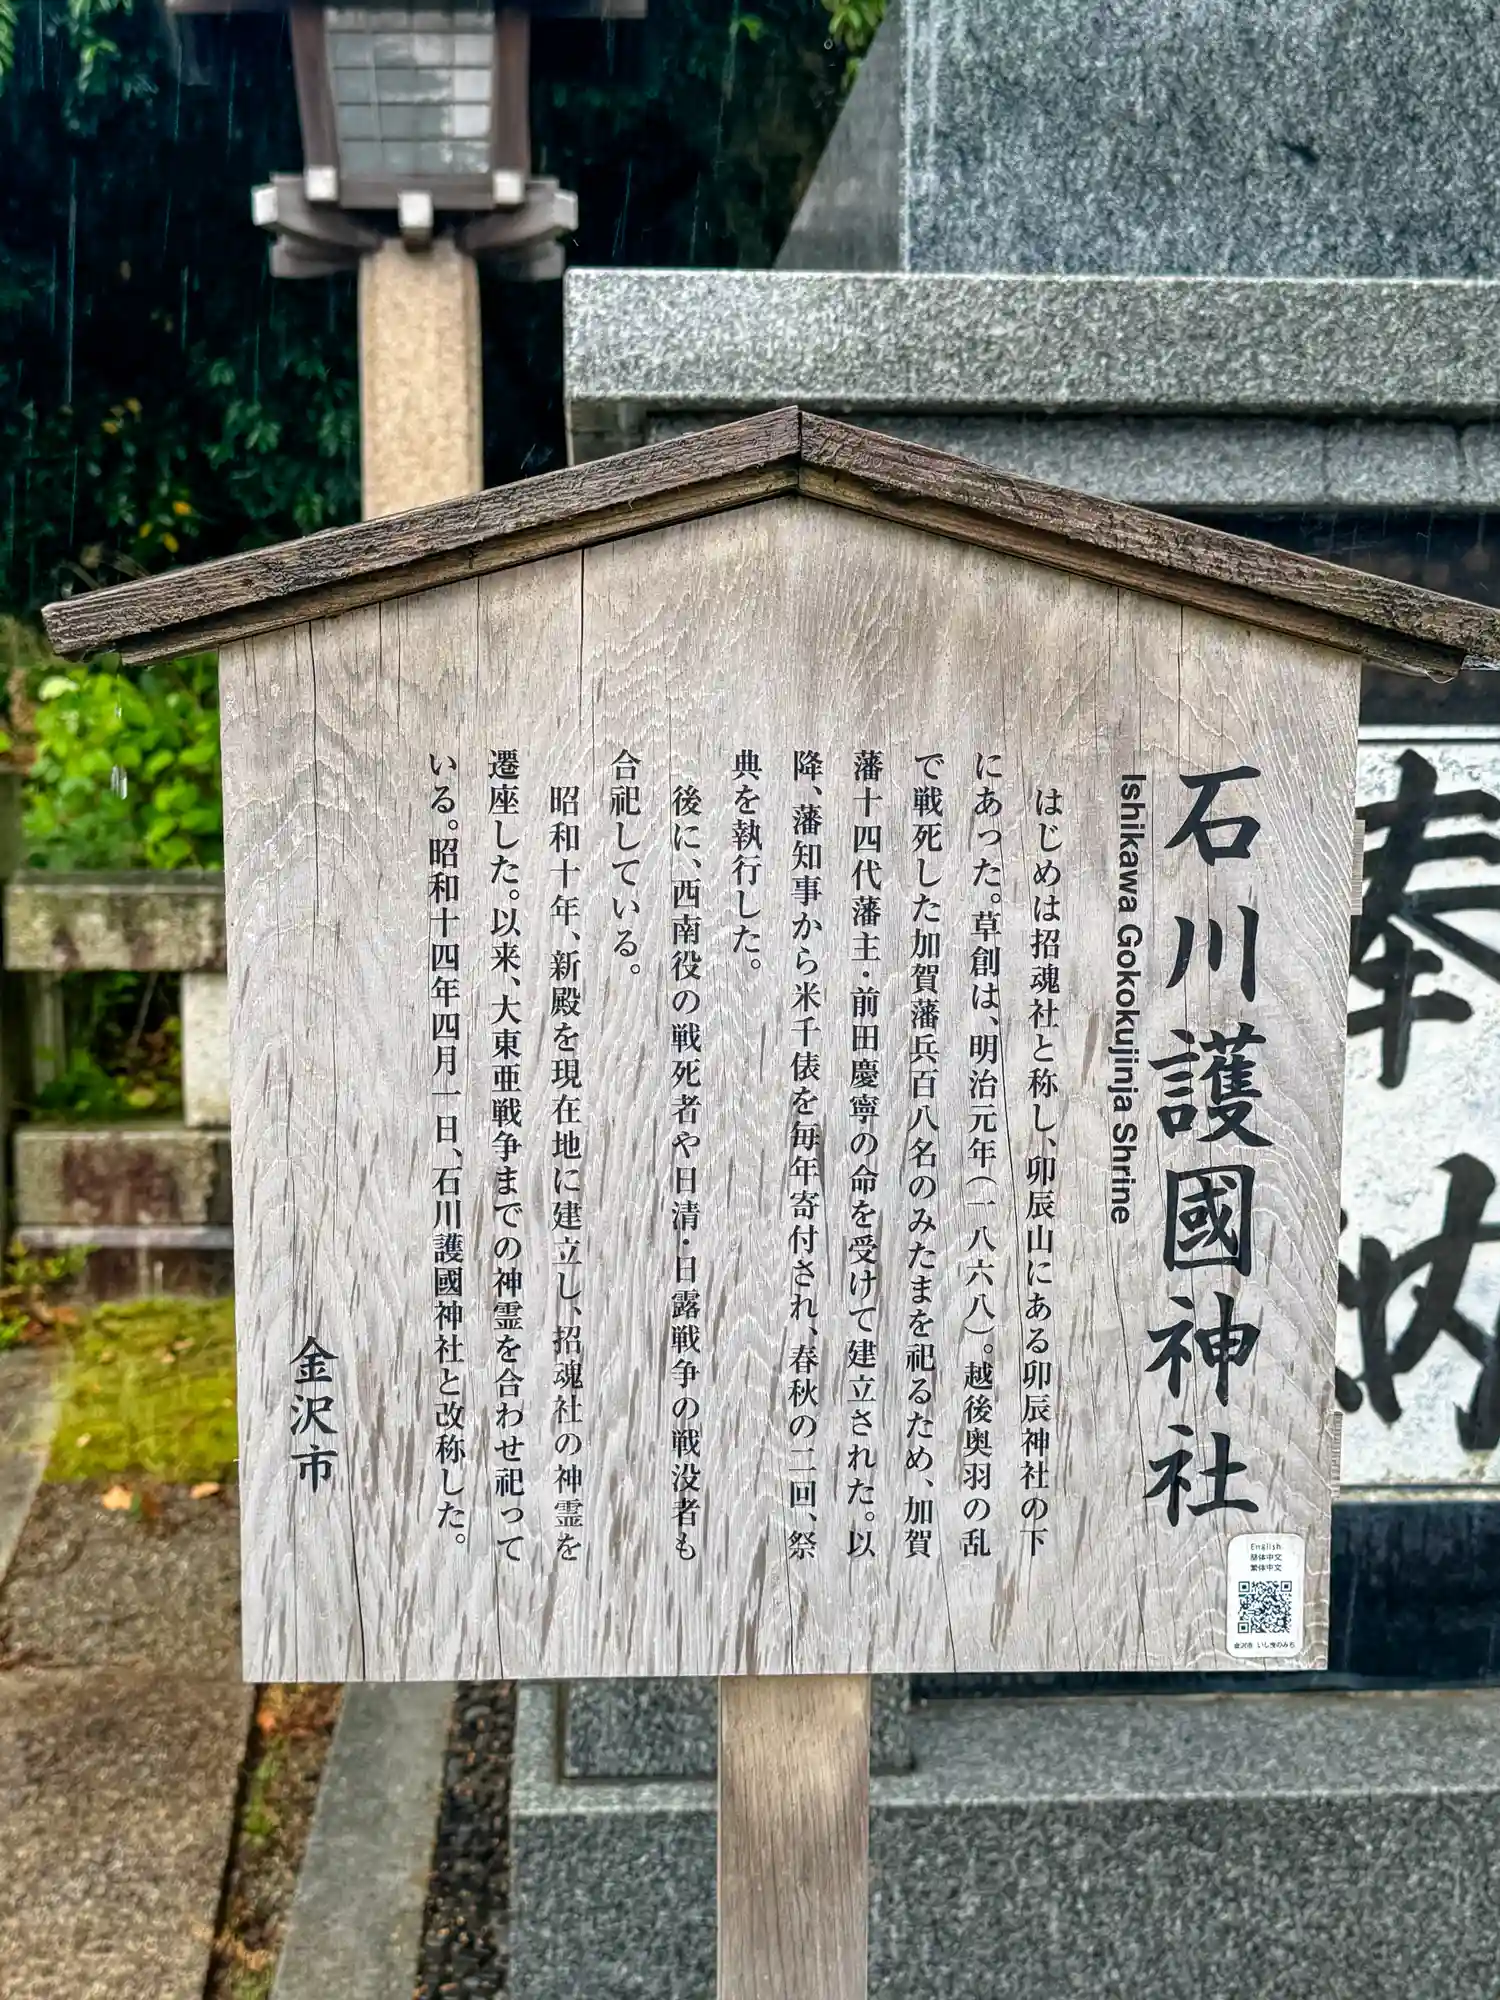 石川護國神社
Ishikawa Gokokujinja Shrine
はじめは招魂社と称し、卯辰山にある卯辰神社の下
にあった。草創は、明治元年(一八六八)。越後奥羽の乱
で戦死した加賀藩兵百八名のみたまを祀るため、加賀
藩十四代藩主・前田慶寧の命を受けて建立された。以
降、藩知事から米千俵を毎年寄付され、春秋の二回、祭
典を執行した。
後に、西南役の戦死者や日清・日露戦争の戦没者も
合祀している。
昭和十年、新殿を現在地に建立し、招魂社の神霊を
遷座した。以来、大東亜戦争までの神霊を合わせ祀って
いる。昭和十四年四月一日、石川護國神社と改称した。
金沢市
English
簡体中文
繁体中文
金沢市 いし曳のみち
奉納